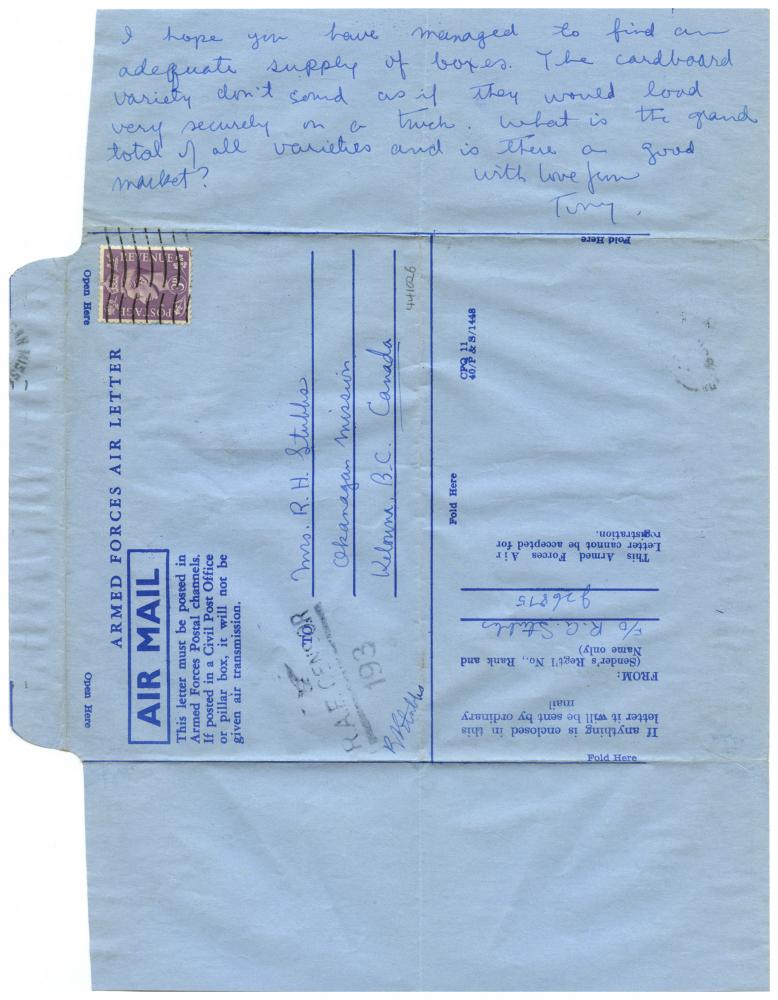 I hope you have managed to find an
adequate supply of boxes. The cardboard
variety don't sound as if they would load
very securely on a truck. What is the grand
total of all varieties and is there a good
market? With love from
Tony.
Fold Here
Open Here
REVENUE
POSTAGE
ARMED FORCES AIR LETTER
AIR MAIL
This letter must be posted in
Armed Forces Postal channels.
If posted in a Civil Post Office
or pillar box, it will not be
given air transmission.
Open Here
TO:
Mrs. R. H. Stubbs
Okanagan Mission
Kelowna, B.C. Canada
441026
RAF CENSOR
193
RAStubbs
Fold Here
CPQ 11
40/P & S/1448
This Armed Forces Air
Letter cannot be accepted for
registration.
If anything is enclosed in this
letter it will be sent by ordinary
mail
FROM:
(Sender's Regt'l No., Rank and
Name only)
F/O R. A. Stubbs
J26875
Fold Here